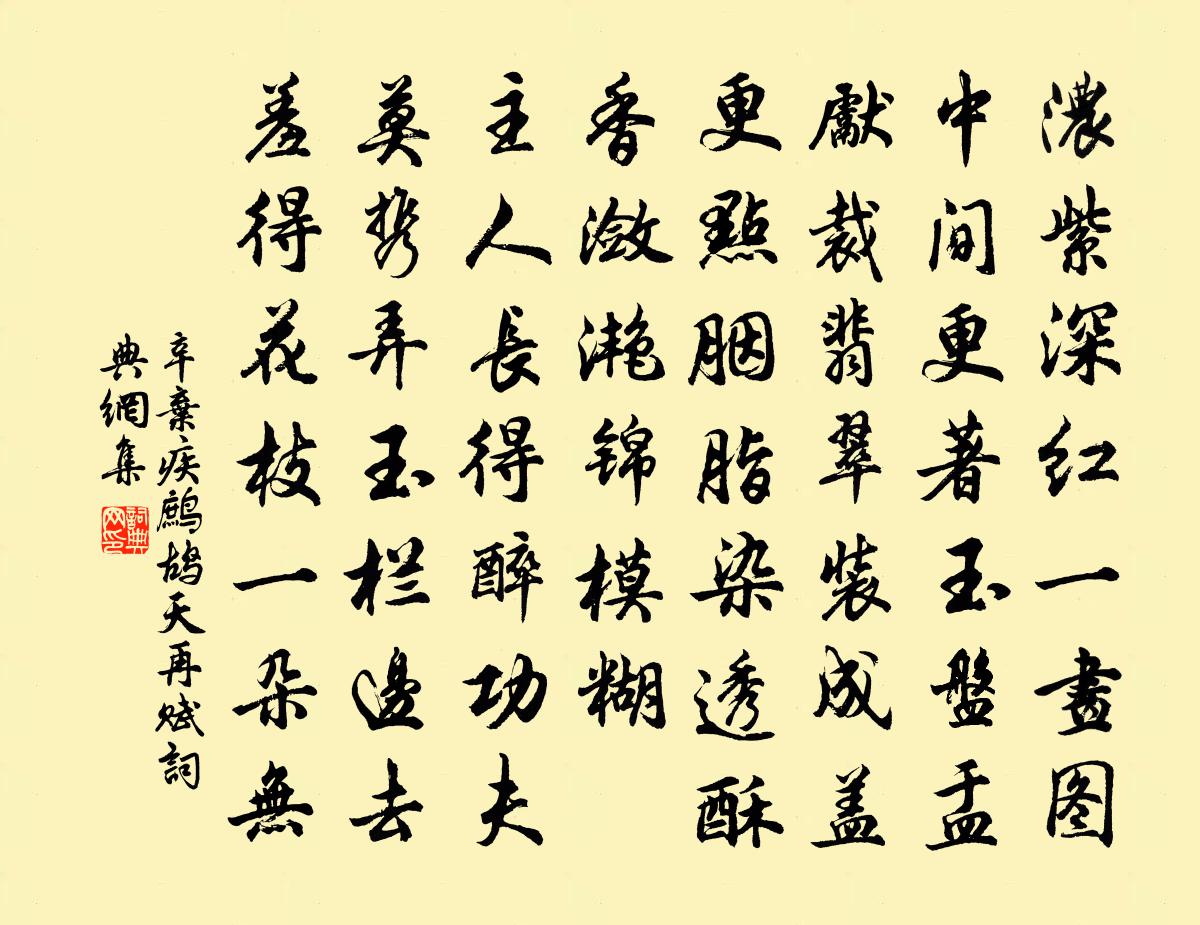 濃紫深红一畫图
中间更著玉盤盂
獻裁翡翠裝成盖
更點胭脂染透酥
香潋滟锦模糊
主人長得醉功夫
莫携弄玉栏邊去
羞得花枝一朵無
辛棄疾鷓鴣天再赋詞
典網集
詞典
网印